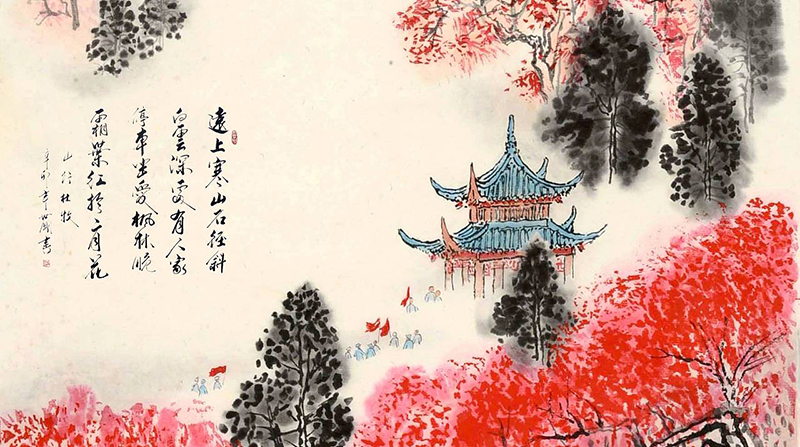 遠上寒山石徑斜
白雲深處有人家
停車坐愛楓林晚
霜葉紅於二月花
山行 杜牧